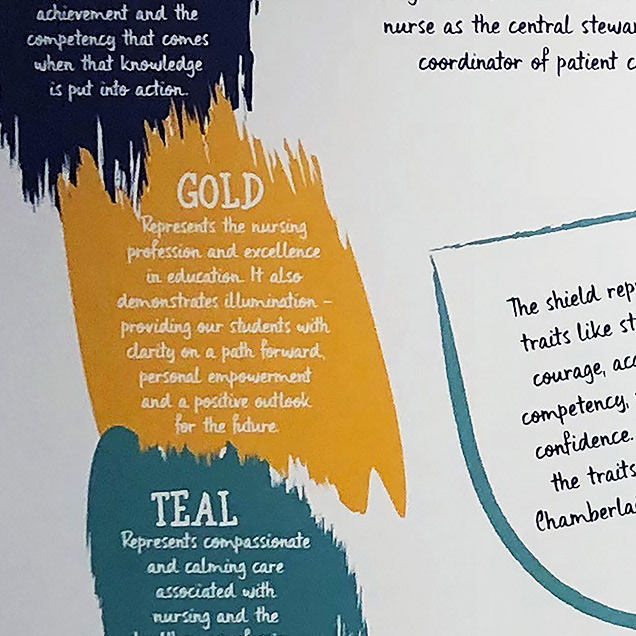 achievement and the
competency that comes
when that knowledge
is put into action.
nurse as the central
coordinator of patient
GOLD
Represents the nursing
profession and excellence
in education. It also
demonstrates illumination –
providing our students with
clarity on a path forward,
personal empowerment
and a positive outlook
for the future.
TEAL
Represents compassionate
and calming care
associated with
nursing and the
The shield
traits like
courage,
competency,
confidence.
the traits